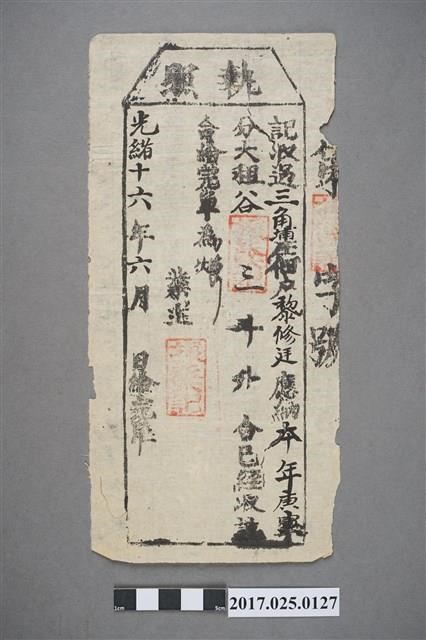 執照
記收過三角埔庄佃戶黎修廷應納本年庚寅
分大租谷三斗外合已經收訖
合給完單為炤
業主
光緒十六年六月 日給完單
字號
1cm 5cm
2017.025.0127